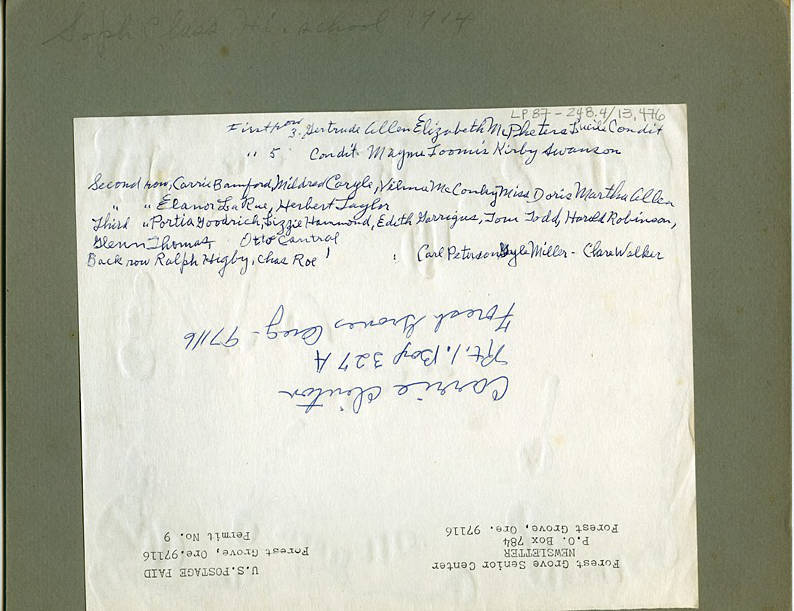 Soph Class Hi. school 1914
LP 87 - 248.4/13,476
First row 3. Gertrude Allen Elizabeth McPheters Lucile Condit
" 5 Condit Mayme Loomis Kirby Swanson
Second row, Carrie Bamford, Mildred Cargle, Velma McConky Miss Doris Martha Allen
" " Elanor LaRue, Herbert Taylor
Third " Portia Goodrich, Lizzie Hammond, Edith Garrigus, Tom Todd, Harold Robinson,
Glenn Thomas Otto Cantral
Back row Ralph Higby, Chas Roe Carl Peterson Gyle Miller - Clara Walker
Carrie Clinton
Rt. 1. Box 327 A
Forest Grove, Oreg - 97116
Forest Grove Senior Center
NEWSLETTER
P.O. Box 784
Forest Grove, Ore. 97116
U.S. POSTAGE PAID
Forest Grove, Ore. 97116
Permit No. 9